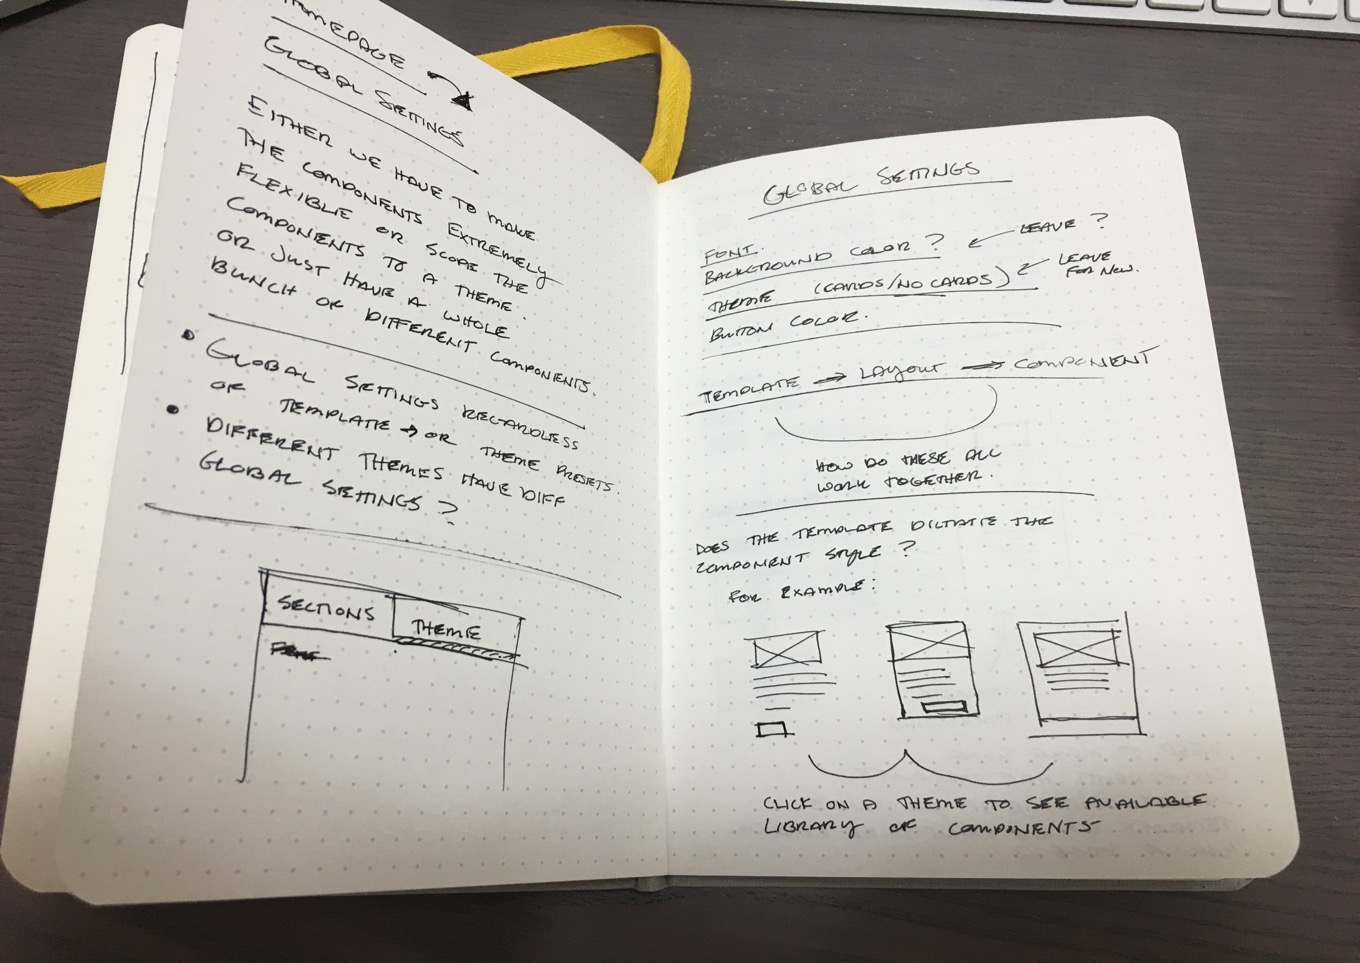 HOMEPAGE
GLOBAL SETTINGS
EITHER WE HAVE TO MAKE
THE COMPONENTS EXTREMELY
FLEXIBLE OR SCOPE THE
COMPONENTS TO A THEME.
OR JUST HAVE A WHOLE
BUNCH OF DIFFERENT COMPONENTS.
• GLOBAL SETTINGS REGARDLESS
OF TEMPLATE → OR THEME PRESETS.
• DIFFERENT THEMES HAVE DIFF
GLOBAL SETTINGS?
SECTIONS
THEME
GLOBAL SETTINGS
FONT.
BACKGROUND COLOR? ← LEAVE?
THEME (CARDS/NO CARDS) ← LEAVE
FOR NOW.
BUTTON COLOR.
TEMPLATE → LAYOUT → COMPONENT
HOW DO THESE ALL
WORK TOGETHER.
DOES THE TEMPLATE DICTATE THE
COMPONENT STYLE?
FOR EXAMPLE:
CLICK ON A THEME TO SEE AVAILABLE
LIBRARY OF COMPONENTS